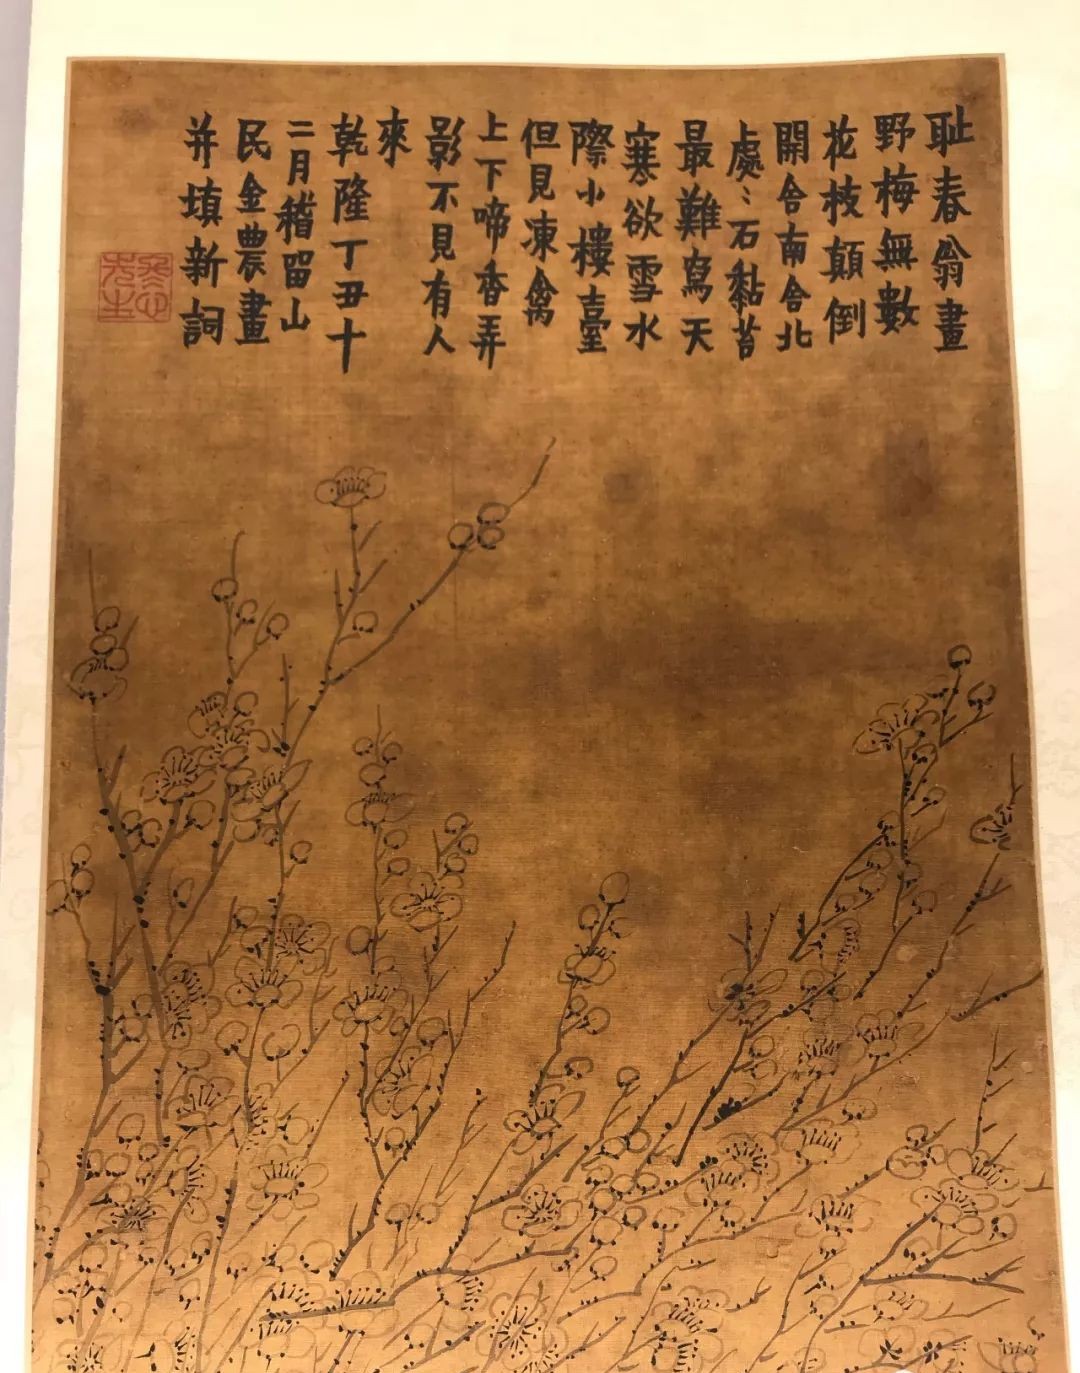 耻春翁畫
野梅無數
花枝顛倒
開舍南舍北
處〻石黏苔
最難寫天
寒欲雪水
際小樓臺
但見凍禽
上下啼香弄
影不見有人
來
乾隆丁丑十
二月稽留山
民金農畫
并填新詞
冬心
先生